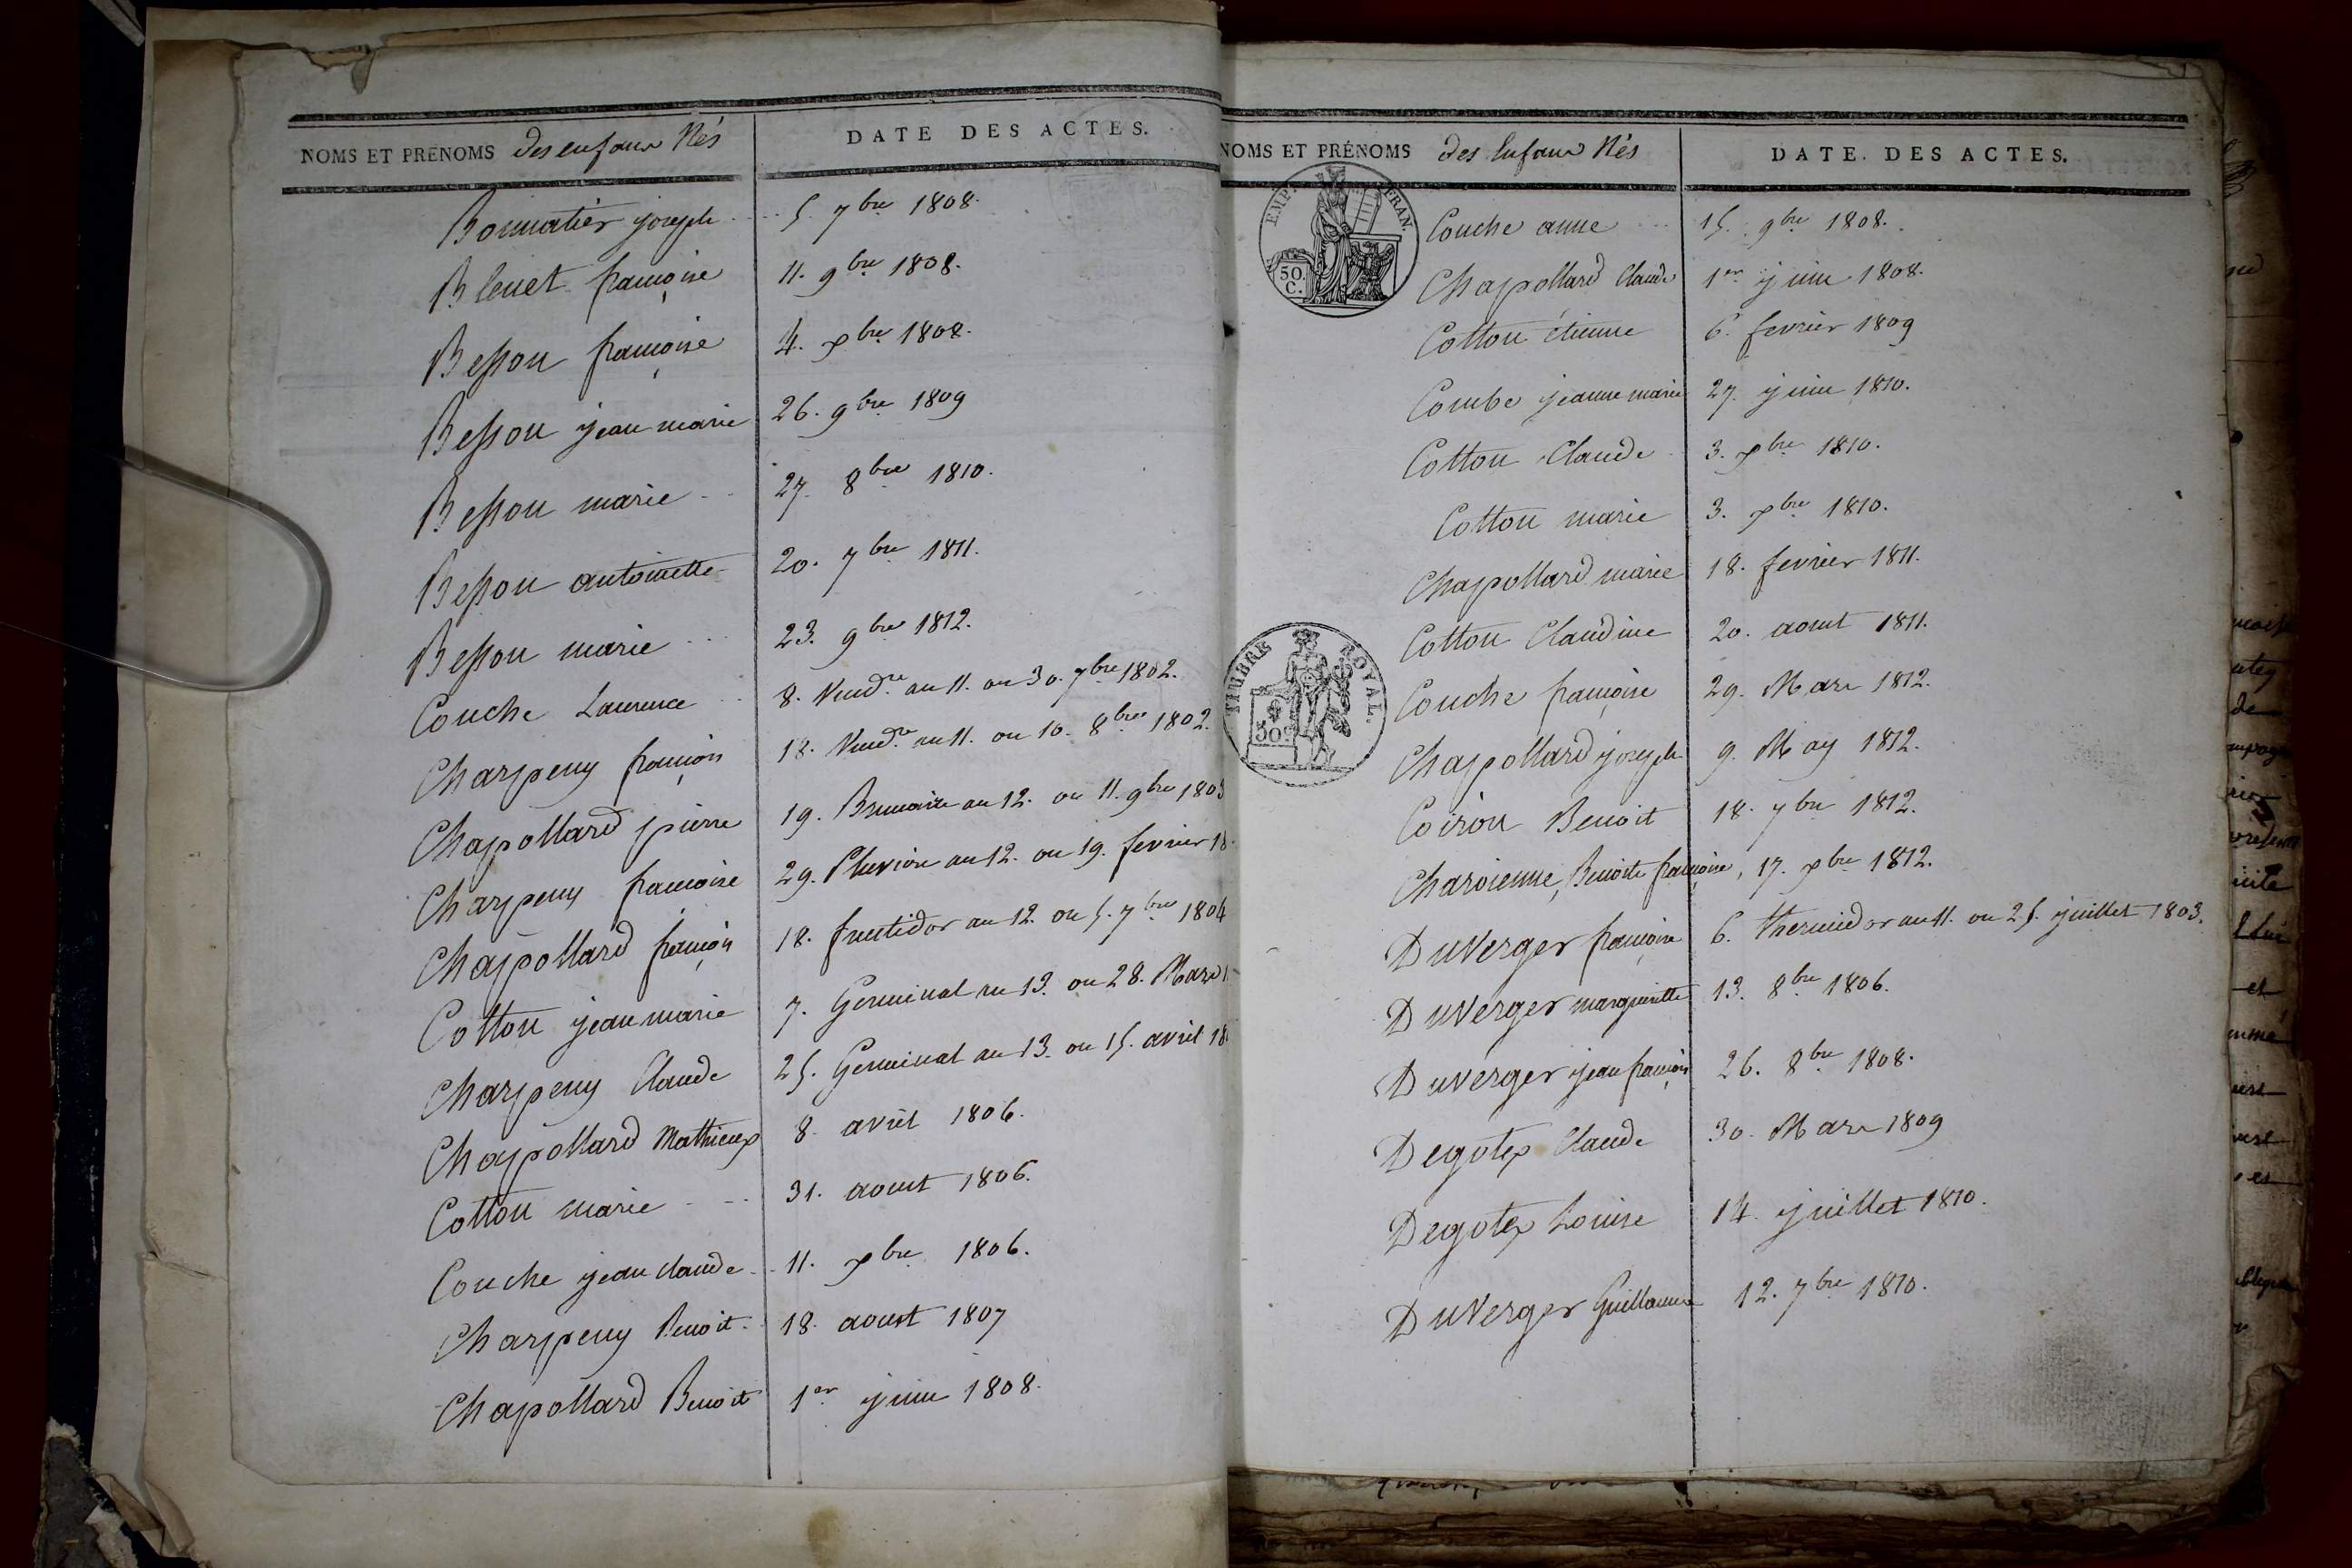 NOMS ET PRÉNOMS des enfans Nés
DATE DES ACTES.
Bonnatier joseph 5. 7bre 1808.
Blenet françoise 11. 9bre 1808.
Besson françoise 4. xbre 1808.
Besson jean marie 26. 9bre 1809
Besson marie 27. 8bre 1810.
Besson antoinette 20. 7bre 1811.
Besson marie 23. 9bre 1812.
Couche Laurence 8. Vendre an 11. ou 30. 7bre 1802.
Charpeny françois 18. Vendre an 11. ou 10. 8bre 1802.
Chapollard pierre 19. Brumaire an 12. ou 11. 9bre 1803
Charpeny françoise 29. Pluviose an 12. ou 19. fevrier 18
Chapollard françois 18. fructidor an 12. ou 5. 7bre 1804
Cotton jean marie 7. Germinal an 13. ou 28. Mars 1
Charpeny Claude 25. Germinal an 13. ou 15. avril 18
Chapollard Mathieux 8. avril 1806.
Cotton marie 31. aoust 1806.
Couche jean claude 11. xbre 1806.
Charpeny Benoit 18. aoust 1807
Chapollard Benoit 1er juin 1808.
NOMS ET PRÉNOMS des Enfans Nés
DATE DES ACTES.
EMP. FRAN.
50. C.
Couche anne 15. 9bre 1808.
Chapollard Claude 1er juin 1808.
Cotton étienne 6. fevrier 1809
Combe jeanne marie 27. juin 1810.
Cotton Claude 3. xbre 1810.
Cotton marie 3. xbre 1810.
Chapollard marie 18. fevrier 1811.
TIMBRE ROYAL.
50c
Cotton Claudine 20. aoust 1811.
Couche françoise 29. Mars 1812.
Chapollard joseph 9. May 1812.
Coiron Benoit 18. 7bre 1812.
Charoienne, Benoite françoise, 17. xbre 1812.
DuVerger françoise 6. thermidor an 11. ou 25. juillet 1803.
DuVerger margueritte 13. 8bre 1806.
Duverger jean françois 26. 8bre 1808.
Degotex Claude 30. Mars 1809
Degotex Louise 14. juillet 1810.
DuVerger Guillaume 12. 7bre 1810.